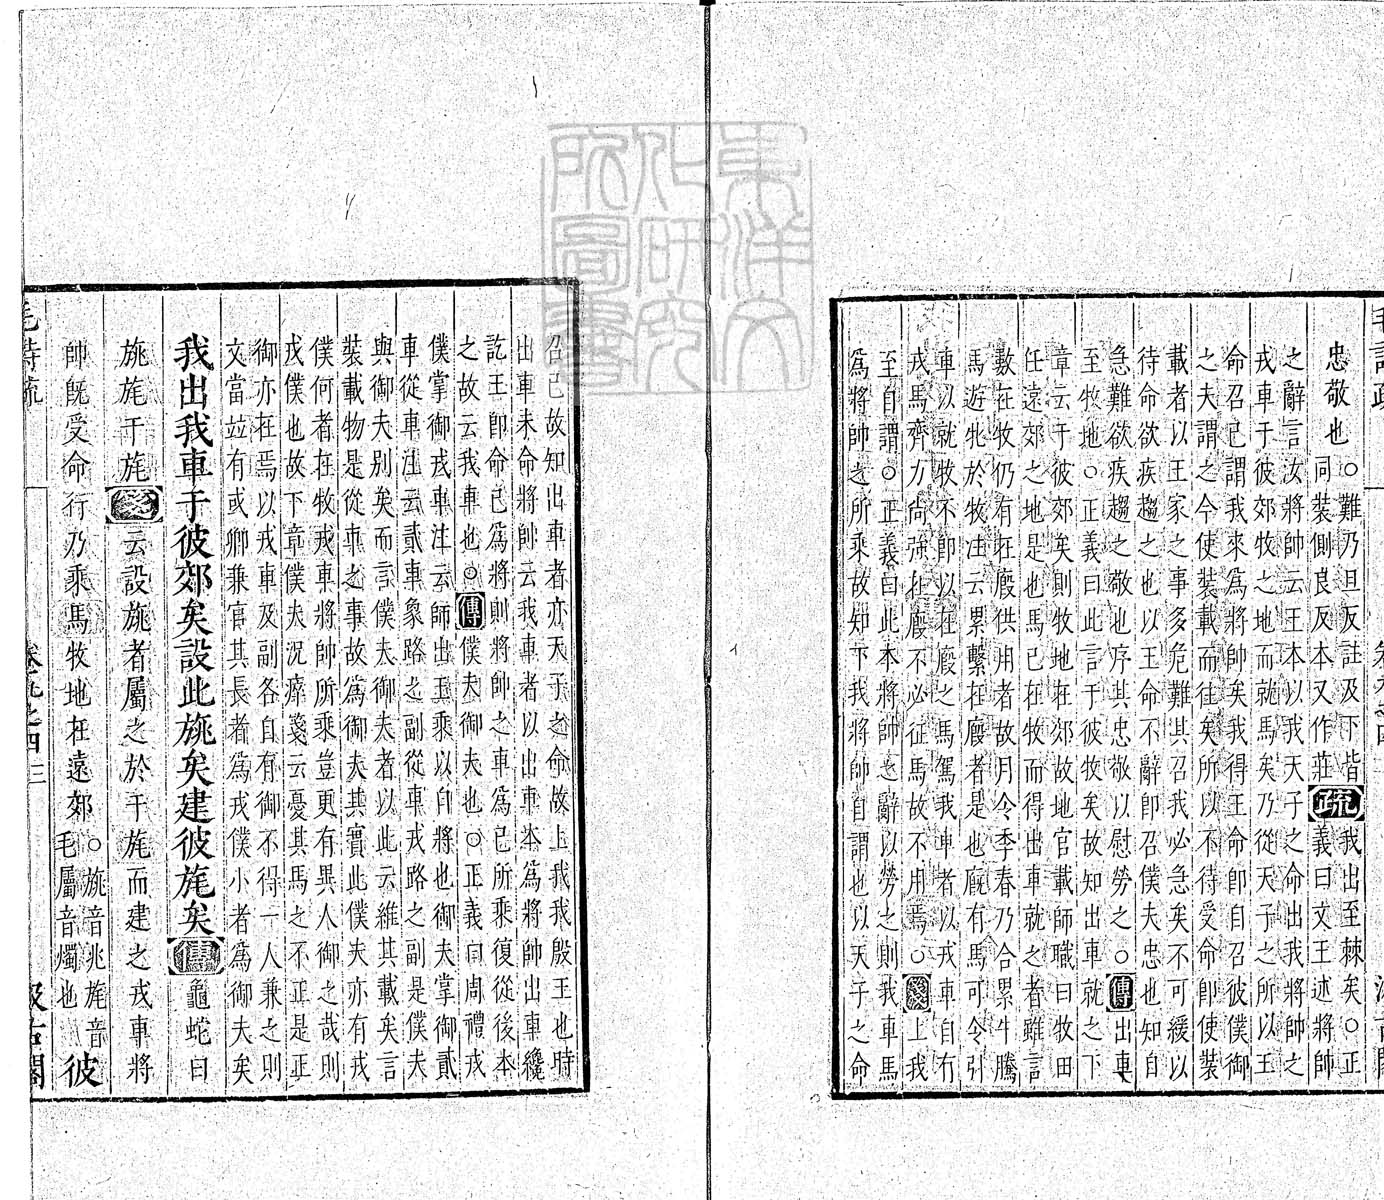 忠敬也○難乃旦反註及下皆
同裝側良反本又作莊疏我出至棘矣○正
義曰文王述將帥
之辭言汝將帥云王本以我天子之命出我將帥之
戎車于彼郊牧之地而就馬矣乃從天子之所以王
命召己謂我來爲將帥矣我得王命卽自召彼僕御
之夫謂之令使裝載而往矣所以不待受命卽使裝
載者以王家之事多危難其召我必急矣不可緩以
待命欲疾趨之也以王命不辭卽召僕夫忠也知自
急難欲疾趨之敬也序其忠敬以慰勞之○傳出車
至牧地○正義曰此言于彼牧矣故知出車就之下
章云于彼郊矣則牧地在郊故地官載師職曰牧田
任遠郊之地是也馬已在牧而得出車就之者雖言
數在牧仍有在廄供用者故月令季春乃合累牛騰
馬遊牝於牧注云累繫在廄者是也廄有馬可令引
車以就牧不卽以在廄之馬駕我車者以戎車自有
戎馬齊力尚強在廄不必征馬故不用焉○箋上我
至自謂○正義曰此本將帥之辭以勞之則我車馬
爲將帥之所乘故知下我將帥自謂也以天子之命
召己故知出車者亦天子之命故上我我殷王也時
出車未命將帥云我車者以出車本爲將帥出車纔
訖王卽命己爲將則將帥之車爲己所乘復從後本
之故云我車也○傳僕夫御夫也○正義曰周禮戎
僕掌御戎車注云師出王乘以自將也御夫掌御貳
車從車注云貳車象路之副從車戎路之副是僕夫
與御夫別矣而言僕夫御夫者以此云維其載矣言
裝載物是從車之事故爲御夫其實此僕夫亦有戎
僕何者在牧戎車將帥所乘豈更有異人御之哉則
戎僕也故下章僕夫況瘁箋云憂其馬之不正是正
御亦在焉以戎車及副各自有御不得一人兼之則
文當竝有或卿兼官其長者爲戎僕小者爲御夫矣
我出我車于彼郊矣設此旐矣建彼旄矣傳龜蛇曰
旐旄干旄箋云設旐者屬之於干旄而建之戎車將
帥旣受命行乃乘馬牧地在遠郊○旐音兆旄音
毛屬音燭也彼
毛詩疏
卷九之四
三
汲古閣